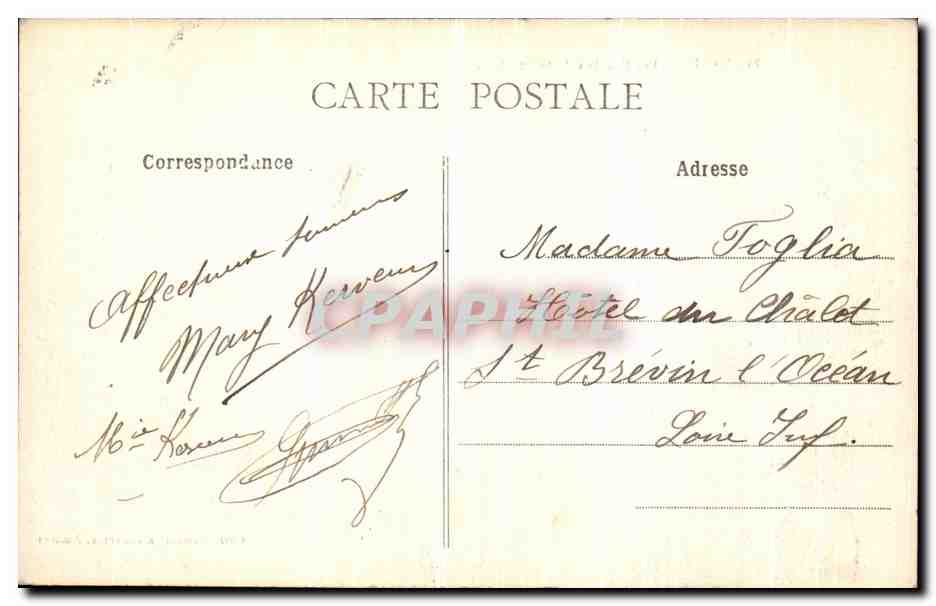 CARTE POSTALE
Correspondance
Adresse
Affectueux
Mary Kerveur
Mie
Madame Toglia
Hôtel du Châlet
St Brévin l'Océan
Loire Inf.
CPAPHIL